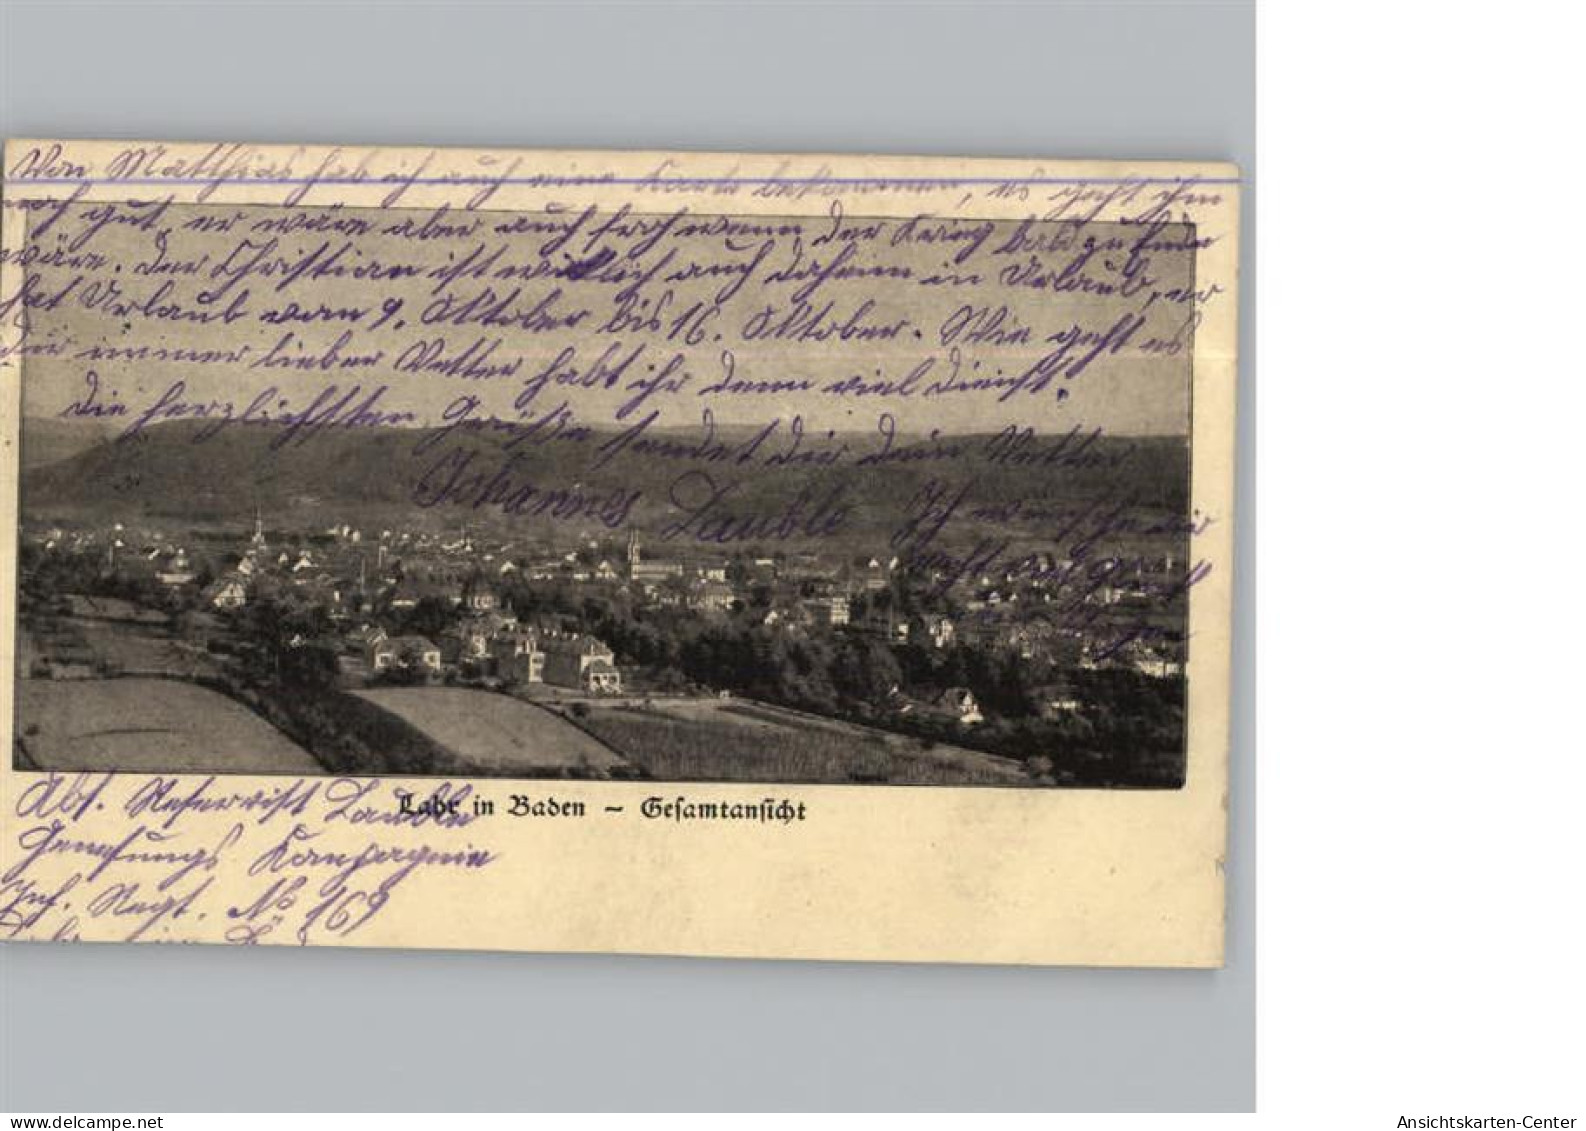 Von Matthias hab ich auch eine Karte bekommen, es geht ihm
noch gut, er wäre aber auch froh wenn der Krieg bald zu Ende
wäre. Der Christian ist wirklich auch daheim in Urlaub, er
hat Urlaub vom 9. Oktober bis 16. Oktober. Wie geht es
Dir immer lieber Vetter habt ihr denn viel Dienst.
Die herzlichsten Grüße sendet Dir Dein Vetter
Johannes Lauble Ich wünsche dir
recht viel Glück
Lahr in Baden – Gesamtansicht
Abs. Reservist Lauble
Genesungs Kompagnie
Inf. Regt. No 169